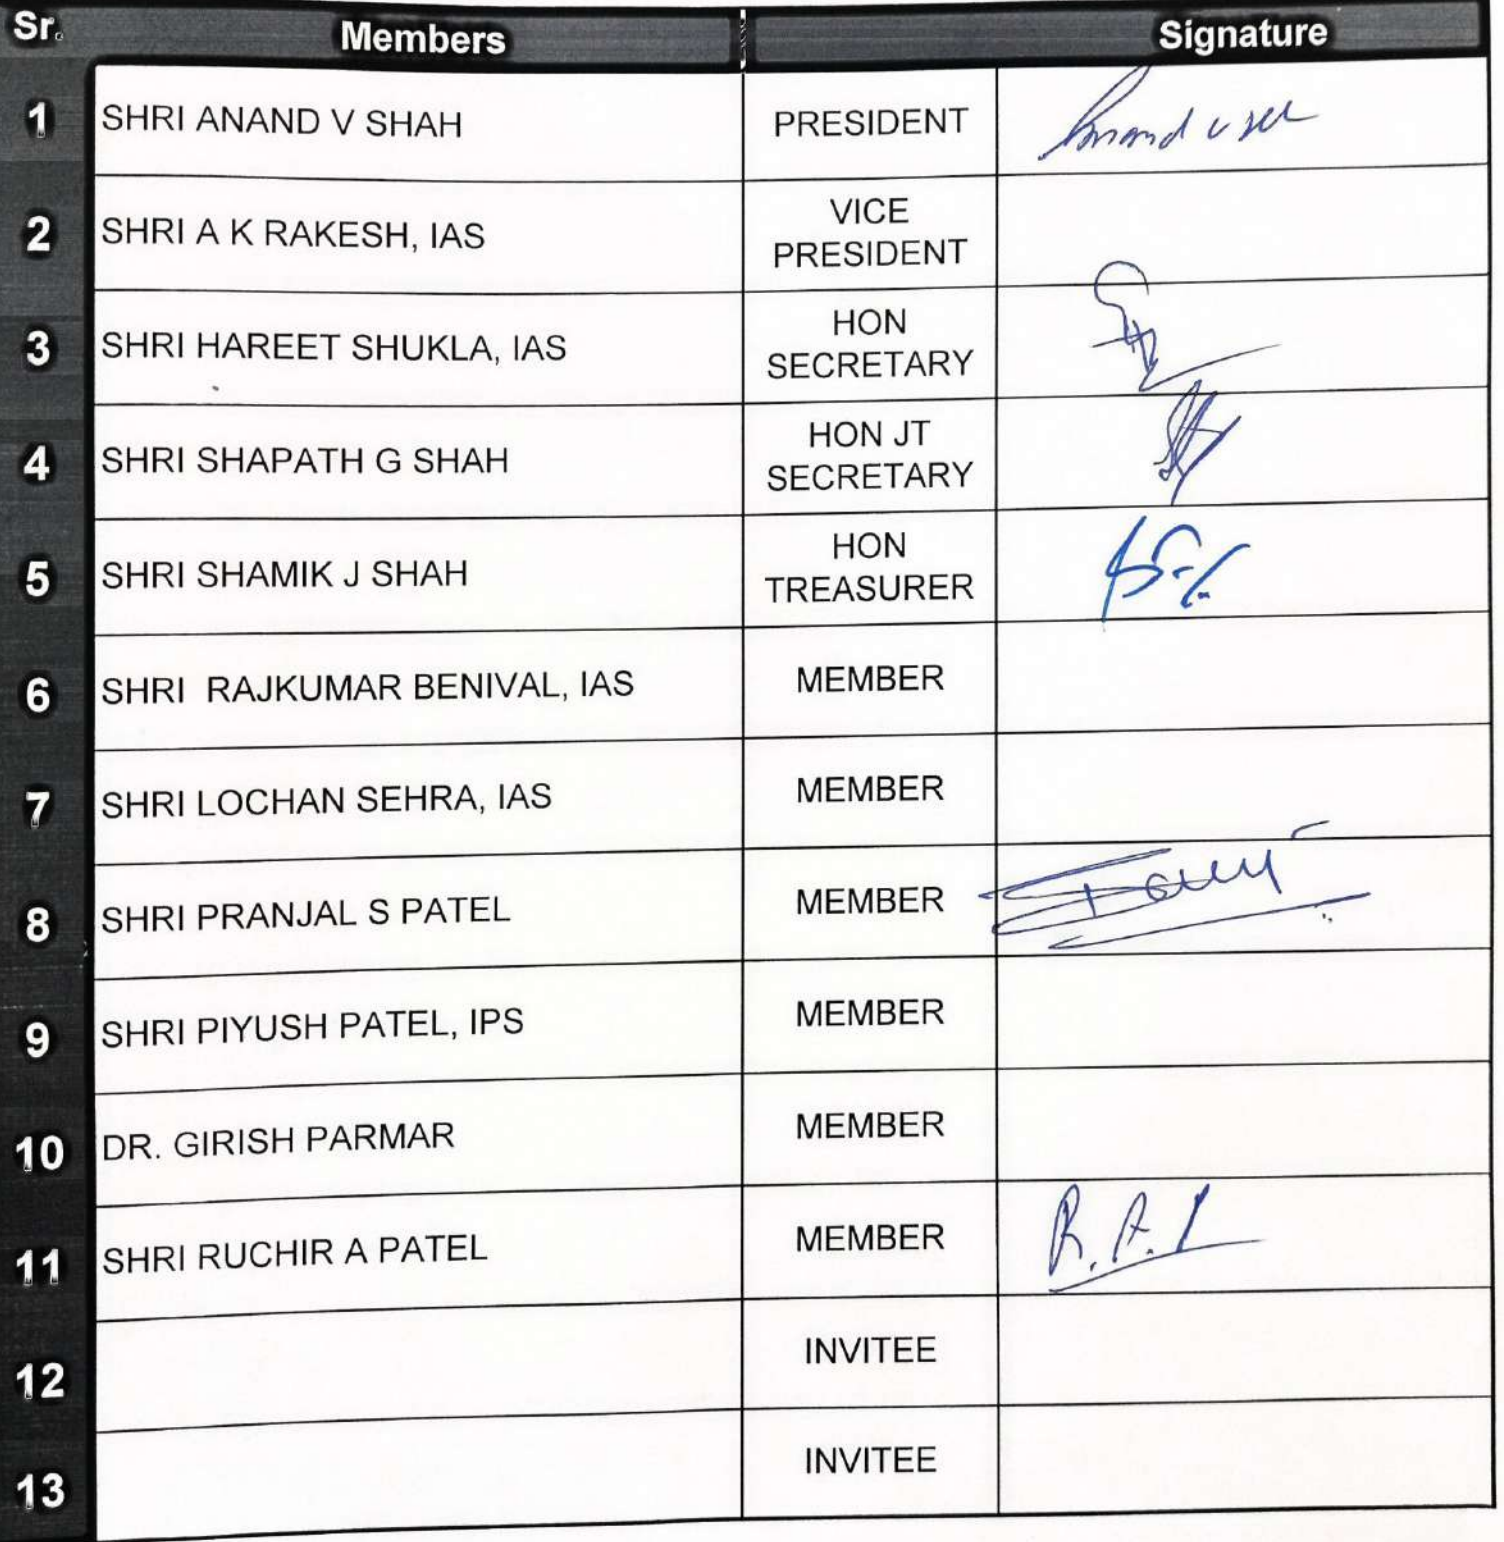 Sr. Members Signature
1 SHRI ANAND V SHAH PRESIDENT Anand v Shah
2 SHRI A K RAKESH, IAS VICE
PRESIDENT
3 SHRI HAREET SHUKLA, IAS HON
SECRETARY
4 SHRI SHAPATH G SHAH HON JT
SECRETARY
5 SHRI SHAMIK J SHAH HON
TREASURER
6 SHRI RAJKUMAR BENIVAL, IAS MEMBER
7 SHRI LOCHAN SEHRA, IAS MEMBER
8 SHRI PRANJAL S PATEL MEMBER
9 SHRI PIYUSH PATEL, IPS MEMBER
10 DR. GIRISH PARMAR MEMBER
11 SHRI RUCHIR A PATEL MEMBER
12 INVITEE
13 INVITEE